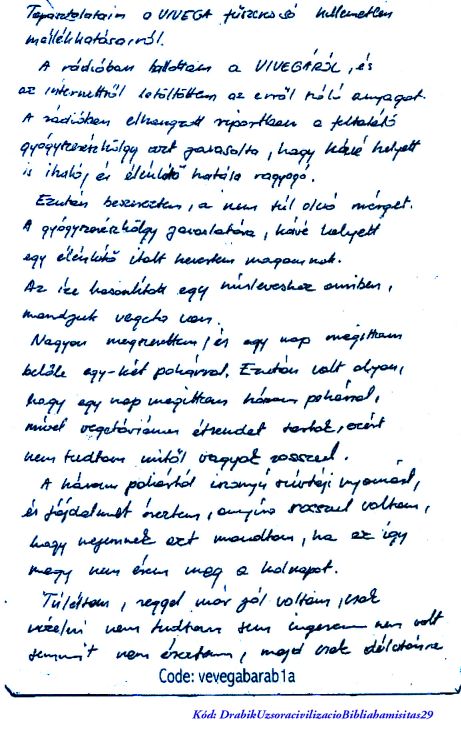 Tapasztalataim a VIVEGA fűszersó kellemetlen
mellékhatásairól.
A rádióban hallottam a VIVEGÁRÓL, és
az internetről letöltöttem az erről szóló anyagot.
A rádióban elhangzott riportban a feltaláló
gyógyszerészhölgy azt javasolta, hogy kávé helyett
is iható, és élénkítő hatása ragyogó.
Ezután beszereztem, a nem túl olcsó mérget.
A gyógyszerészhölgy javaslatára, kávé helyett
egy élénkítő italt kevertem magamnak.
Az íze hasonlított egy húsleveshez amiben,
mondjuk vegeta van.
Nagyon megszerettem, és egy nap megittam
belőle egy-két pohárral. Ezután volt olyan,
hogy egy nap megittam három pohárral,
mivel vegetáriánus étrendet tartok, ezért
nem tudtam mitől vagyok rosszul.
A három pohártól iszonyú szívtáji nyomást,
és fájdalmat éreztem, annyira rosszul voltam,
hogy nejemnek azt mondtam, ha ez így
megy nem érem meg a holnapot.
Túléltem, reggel már jól voltam, csak
vizelni nem tudtam sem ingerem nem volt
semmit nem éreztem, majd csak délutánra
Code: vevegabarab1a
Kód: DrabikUzsoracivilizacioBibliahamisitas29